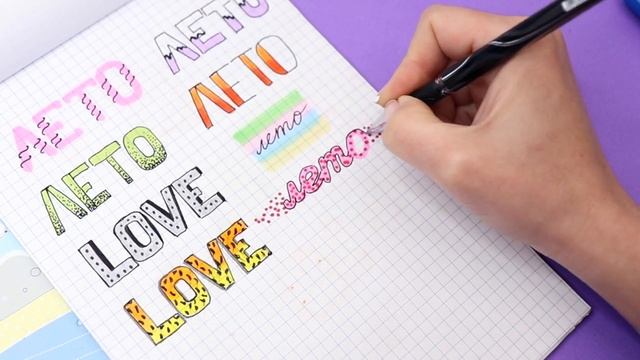 ЛЕТО
ЛЕТО
ЛЕТО
ЛЕТО
лето
лето
LOVE
LOVE